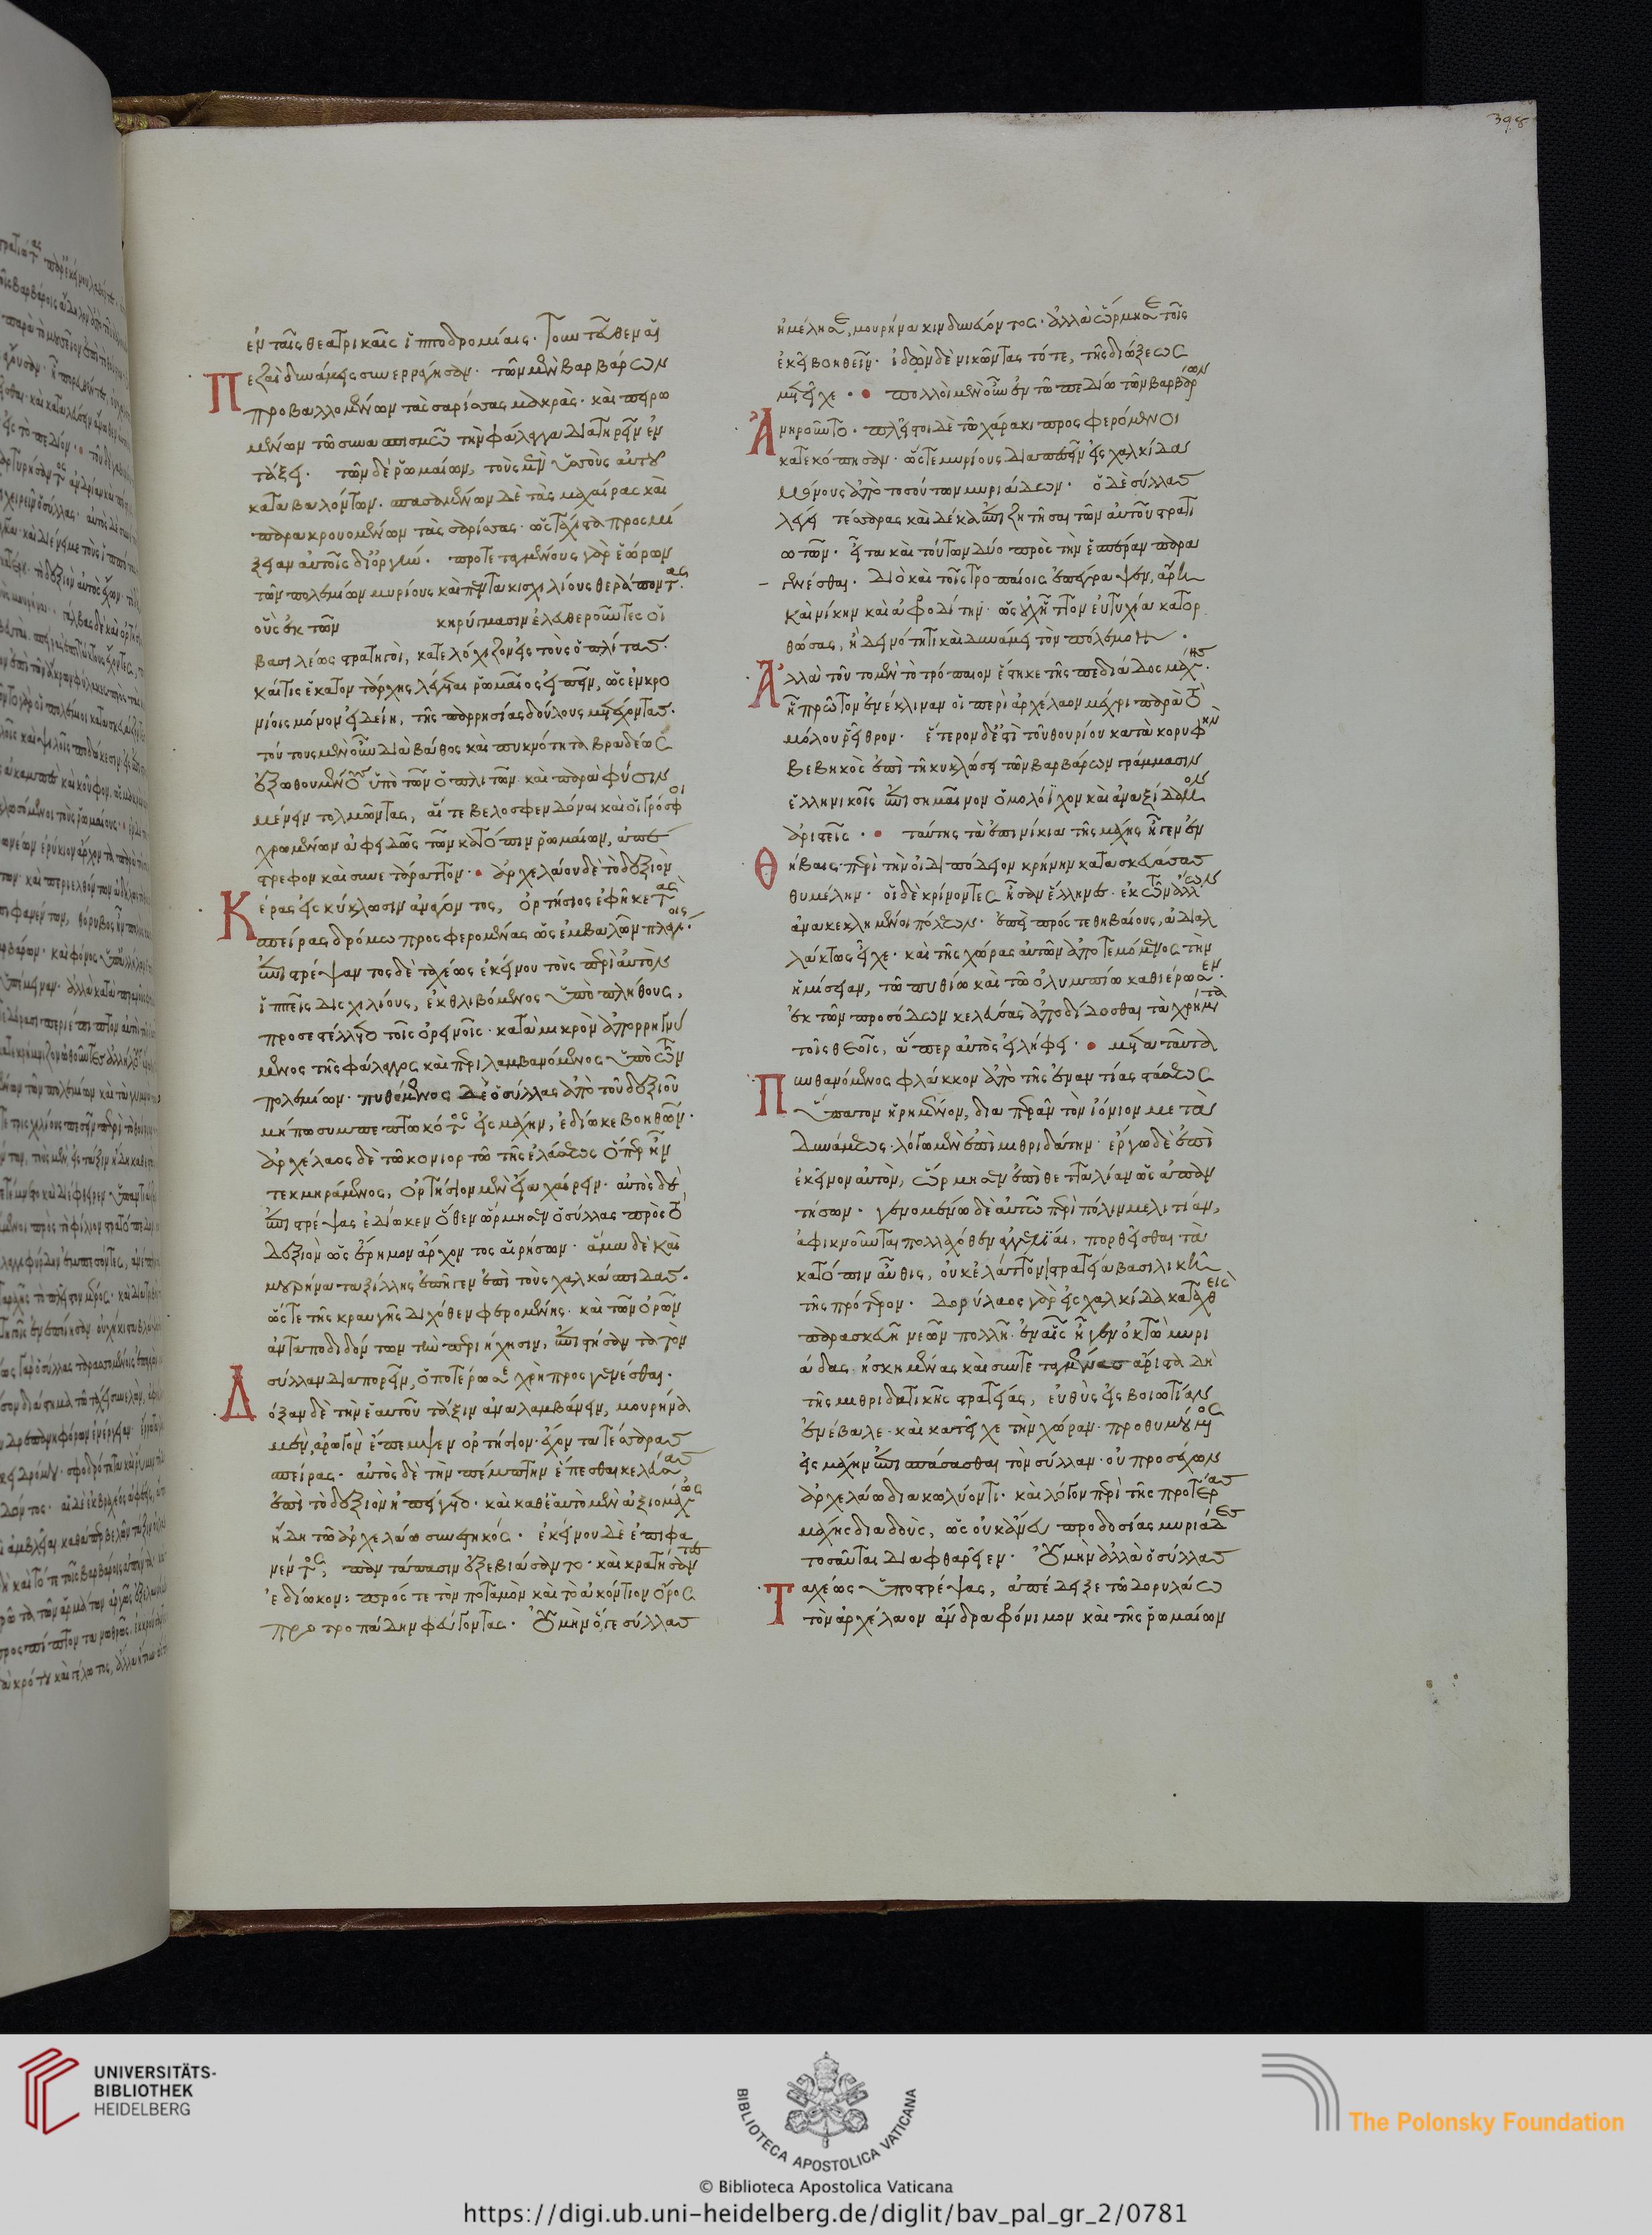 398
ἐν ταῖς θεατρικαῖς ἱπποδρομίαις. τοὐντεῦθεν αἱ
Πεζαὶ δυνάμεις συνερράγησαν. τῶν μὲν βαρβάρων
προβαλλομένων τὰς σαρίσσας μακρὰς. καὶ πειρω
μένων τῶ συνασπισμῶ τὴν φάλαγγα διατηρεῖν ἐν
τάξει. τῶν δὲ ῥωμαίων, τοὺς μὲν ὑσσοὺς αὐτοῦ
καταβαλόντων. σπασαμένων δὲ τὰς μαχαίρας καὶ
παρακρουομένων τὰς σαρίσσας. ὡς τάχιστα προσμί
ξειαν αὐτοῖς δι' ὀργήν. προτεταγμένους γὰρ ἑώρων
τῶν πολεμίων μυρίους καὶ πεντακισχιλίους θεράποντας.
οὓς ἐκ τῶν κηρύγμασιν ἐλευθεροῦντες οἱ
βασιλέως στρατηγοὶ, κατελόχιζον εἰς τοὺς ὁπλίτας.
καί τις ἑκατοντάρχης λέγεται ῥωμαῖος εἰπεῖν, ὡς ἐν κρο
νίοις μόνον εἰδείη, τῆς παρρησίας δούλους μετέχοντας.
τούτους μὲν οὖν διὰ βάθος καὶ πυκνότητα βραδέως
ἐξωθουμένους ὑπὸ τῶν ὁπλιτῶν καὶ παρὰ φύσιν
μένειν τολμῶντας, αἵ τε βελοσφενδόναι καὶ οἱ γρόσφοι
χρωμένων ἀφειδῶς τῶν κατόπιν ῥωμαίων, ἀπέ
στρεφον καὶ συνετάραττον. ἀρχελάου δὲ τὸ δεξιὸν
Κέρας εἰς κύκλωσιν ἀνάγοντος, ὁρτήσιος ἐφῆκε τὰς
σπείρας δρόμω προσφερομένας ὡς ἐμβαλῶν πλαγίοις.
ἐπιστρέψαντος δὲ ταχέως ἐκείνου τοὺς περὶ αὐτὸν
ἱππεῖς δισχιλίους, ἐκθλιβόμενος ὑπὸ πλήθους,
προσεστέλλετο τοῖς ὀρεινοῖς. κατὰ μικρὸν ἀπορρηγνύ
μενος τῆς φάλαγγος καὶ περιλαμβανόμενος ὑπὸ τῶν
πολεμίων. πυθόμενος δὲ ὁ σύλλας ἀπὸ τοῦ δεξιοῦ
μήπω συμπεπτωκότος εἰς μάχην, ἐδίωκε βοηθῶν.
ἀρχέλαος δὲ τῶ κονιορτῶ τῆς ἐλάσεως ὅπερ ἦν
τεκμηράμενος, ὁρτήσιον μὲν εἴα χαίρειν. αὐτὸς δὲ
ἐπιστρέψας ἐδίωκεν ὅθεν ὥρμησεν ὁ σύλλας πρὸς τὸ
δεξιὸν ὡς ἔρημον ἄρχοντος αἱρήσων. ἅμα δὲ καὶ
μουρήνα ταξίλλης ἐπῆγεν ἐπὶ τοὺς χαλκάσπιδας.
ὥστε τῆς κραυγῆς διχόθεν φερομένης. καὶ τῶν ὀρῶν
ἀνταποδιδόντων τὴν περιήχησιν, ἐπιστήσαντα τὸν
σύλλαν διαπορεῖν, ὁποτέρωσε χρὴ προσγενέσθαι.
Δόξαν δὲ τὴν ἑαυτοῦ τάξιν ἀναλαμβάνειν, μουρήνα
μὲν, ἀρωγὸν ἔπεμψεν ὁρτήσιον. ἔχοντα τέσσαρας
σπείρας. αὐτὸς δὲ τὴν πέμπτην ἕπεσθαι κελεύσας,
ἐπὶ τὸ δεξιὸν ἠπείγετο. καὶ καθ' ἑαυτὸ μὲν ἀξιομάχως
ἤδη τῶ ἀρχελάω συνεστηκὸς. ἐκείνου δὲ ἐπιφα
νέντος, παντάπασιν ἐξεβιάσαντο. καὶ κρατήσαντες
ἐδίωκον: πρός τε τὸν ποταμὸν καὶ τὸ ἀκόντιον ὄρος
προτροπάδην φεύγοντας. Οὐ μὴν ὅγε σύλλας
ἠμέλησε μουρήνα κινδυνεύοντος. ἀλλὰ ὥρμησε τοῖς
ἐκεῖ βοηθεῖν. ἰδὼν δὲ νικῶντας τότε, τῆς διώξεως
μετεῖχε. πολλοὶ μὲν οὖν ἐν τῶ πεδίω τῶν βαρβάρων
Ἀνηροῦντο. πλεῖστοι δὲ τῶ χάρακι προσφερόμενοι
κατεκόπησαν. ὥστε μυρίους διαπεσεῖν εἰς χαλκίδα
μόνους ἀπὸ τοσούτων μυριάδων. ὁ δὲ σύλλας
λέγει τέσσαρας καὶ δέκα ἐπιζητῆσαι τῶν αὐτοῦ στρατι
ωτῶν. εἶτα καὶ τούτων δύο πρὸς τὴν ἑσπέραν παρα
γενέσθαι. Διὸ καὶ τοῖς τροπαίοις ἐπέγραψεν, ἄρην
καὶ νίκην καὶ ἀφροδίτην. ὡς οὐχ ἧττον εὐτυχία κατορ
θώσας, ἢ δεινότητι καὶ δυνάμει τὸν πόλεμον.
Ἀλλὰ τοῦτο μὲν τὸ τρόπαιον ἕστηκε τῆς πεδιάδος μάχης.
ἧ πρῶτον ἐνέκλιναν οἱ περὶ ἀρχέλαον μέχρι παρὰ τὸ
μόλου ῥεῖθρον. ἕτερον δέ ἐστι τοῦ θουρίου κατὰ κορυφὴν
βεβηκὸς ἐπὶ τῆ κυκλώσει τῶν βαρβάρων γράμμασιν
ἑλληνικοῖς ἐπισημαῖνον ὁμολόϊχον καὶ ἀναξίδαμον
ἀριστεῖς. ταύτης τὰ ἐπινίκια τῆς μάχης ἦγεν ἐν
Θήβαις περὶ τὴν οἰδιπόδειον κρήνην κατασκευάσας
θυμέλην. οἱ δὲ κρίνοντες ἦσαν ἕλληνες. ἐκ τῶν ἄλλων
ἀνακεκλημένοι πόλεων. ἐπεὶ πρός τε θηβαίους, ἀδιαλ
λάκτως εἶχε. καὶ τῆς χώρας αὐτῶν ἀποτεμόμενος τὴν
ἡμίσειαν, τῶ πυθίω καὶ τῶ ὀλυμπίω καθιέρωσεν.
ἐκ τῶν προσόδων κελεύσας ἀποδίδοσθαι τὰ χρήματα
τοῖς θεοῖς, ἅπερ αὐτὸς εἰλήφει. μετὰ ταῦτα
Πυνθανόμενος φλάκκον ἀπὸ τῆς ἐναντίας στάσεως
ὕπατον ἡρημένον, διαπερᾶν τὸν ἰόνιον μετὰ
δυνάμεως. λόγω μὲν ἐπὶ μιθριδάτην. ἔργω δὲ ἐπὶ
ἐκεῖνον αὐτὸν, ὥρμησεν ἐπὶ θετταλίαν ὡς ἀπαν
τήσων. γενομένω δὲ αὐτῶ περὶ πόλιν μελιτίαν,
ἀφικνοῦνται πολλαχόθεν ἀγγελίαι, πορθεῖσθαι τὰ
κατόπιν αὖθις, οὐκ ἐλάττονι στρατεία βασιλικῆ
τῆς πρότερον. Δορύλαος γὰρ εἰς χαλκίδα καταχθεὶς
παρασκευῆ νεῶν πολλῆ. ἐν αἷς ἦγεν ὀκτὼ μυρι
άδας. ἠσκημένας καὶ συντεταγμένας ἄριστα δὴ
τῆς μιθριδατικῆς στρατειάς, εὐθὺς εἰς βοιωτίαν
ἐνέβαλε. καὶ κατεῖχε τὴν χώραν. προθυμούμενος
εἰς μάχην ἐπισπάσασθαι τὸν σύλλαν. οὐ προσέχων
ἀρχελάω διακωλύοντι. καὶ λόγον περὶ τῆς προτέρας
μάχης διαδοὺς, ὡς οὐκ ἄνευ προδοσίας μυριάδες
τοσαῦται διαφθαρεῖεν. Οὐ μὴν ἀλλὰ ὁ σύλλας
Ταχέως ὑποστρέψας, ἀπέδειξε τῶ δορυλάω
τὸν ἀρχέλαον ἄνδρα φρόνιμον καὶ τῆς ῥωμαίων
UNIVERSITÄTS-
BIBLIOTHEK
HEIDELBERG
BIBLIOTECA APOSTOLICA VATICANA
The Polonsky Foundation
© Biblioteca Apostolica Vaticana
https://digi.ub.uni-heidelberg.de/diglit/bav_pal_gr_2/0781